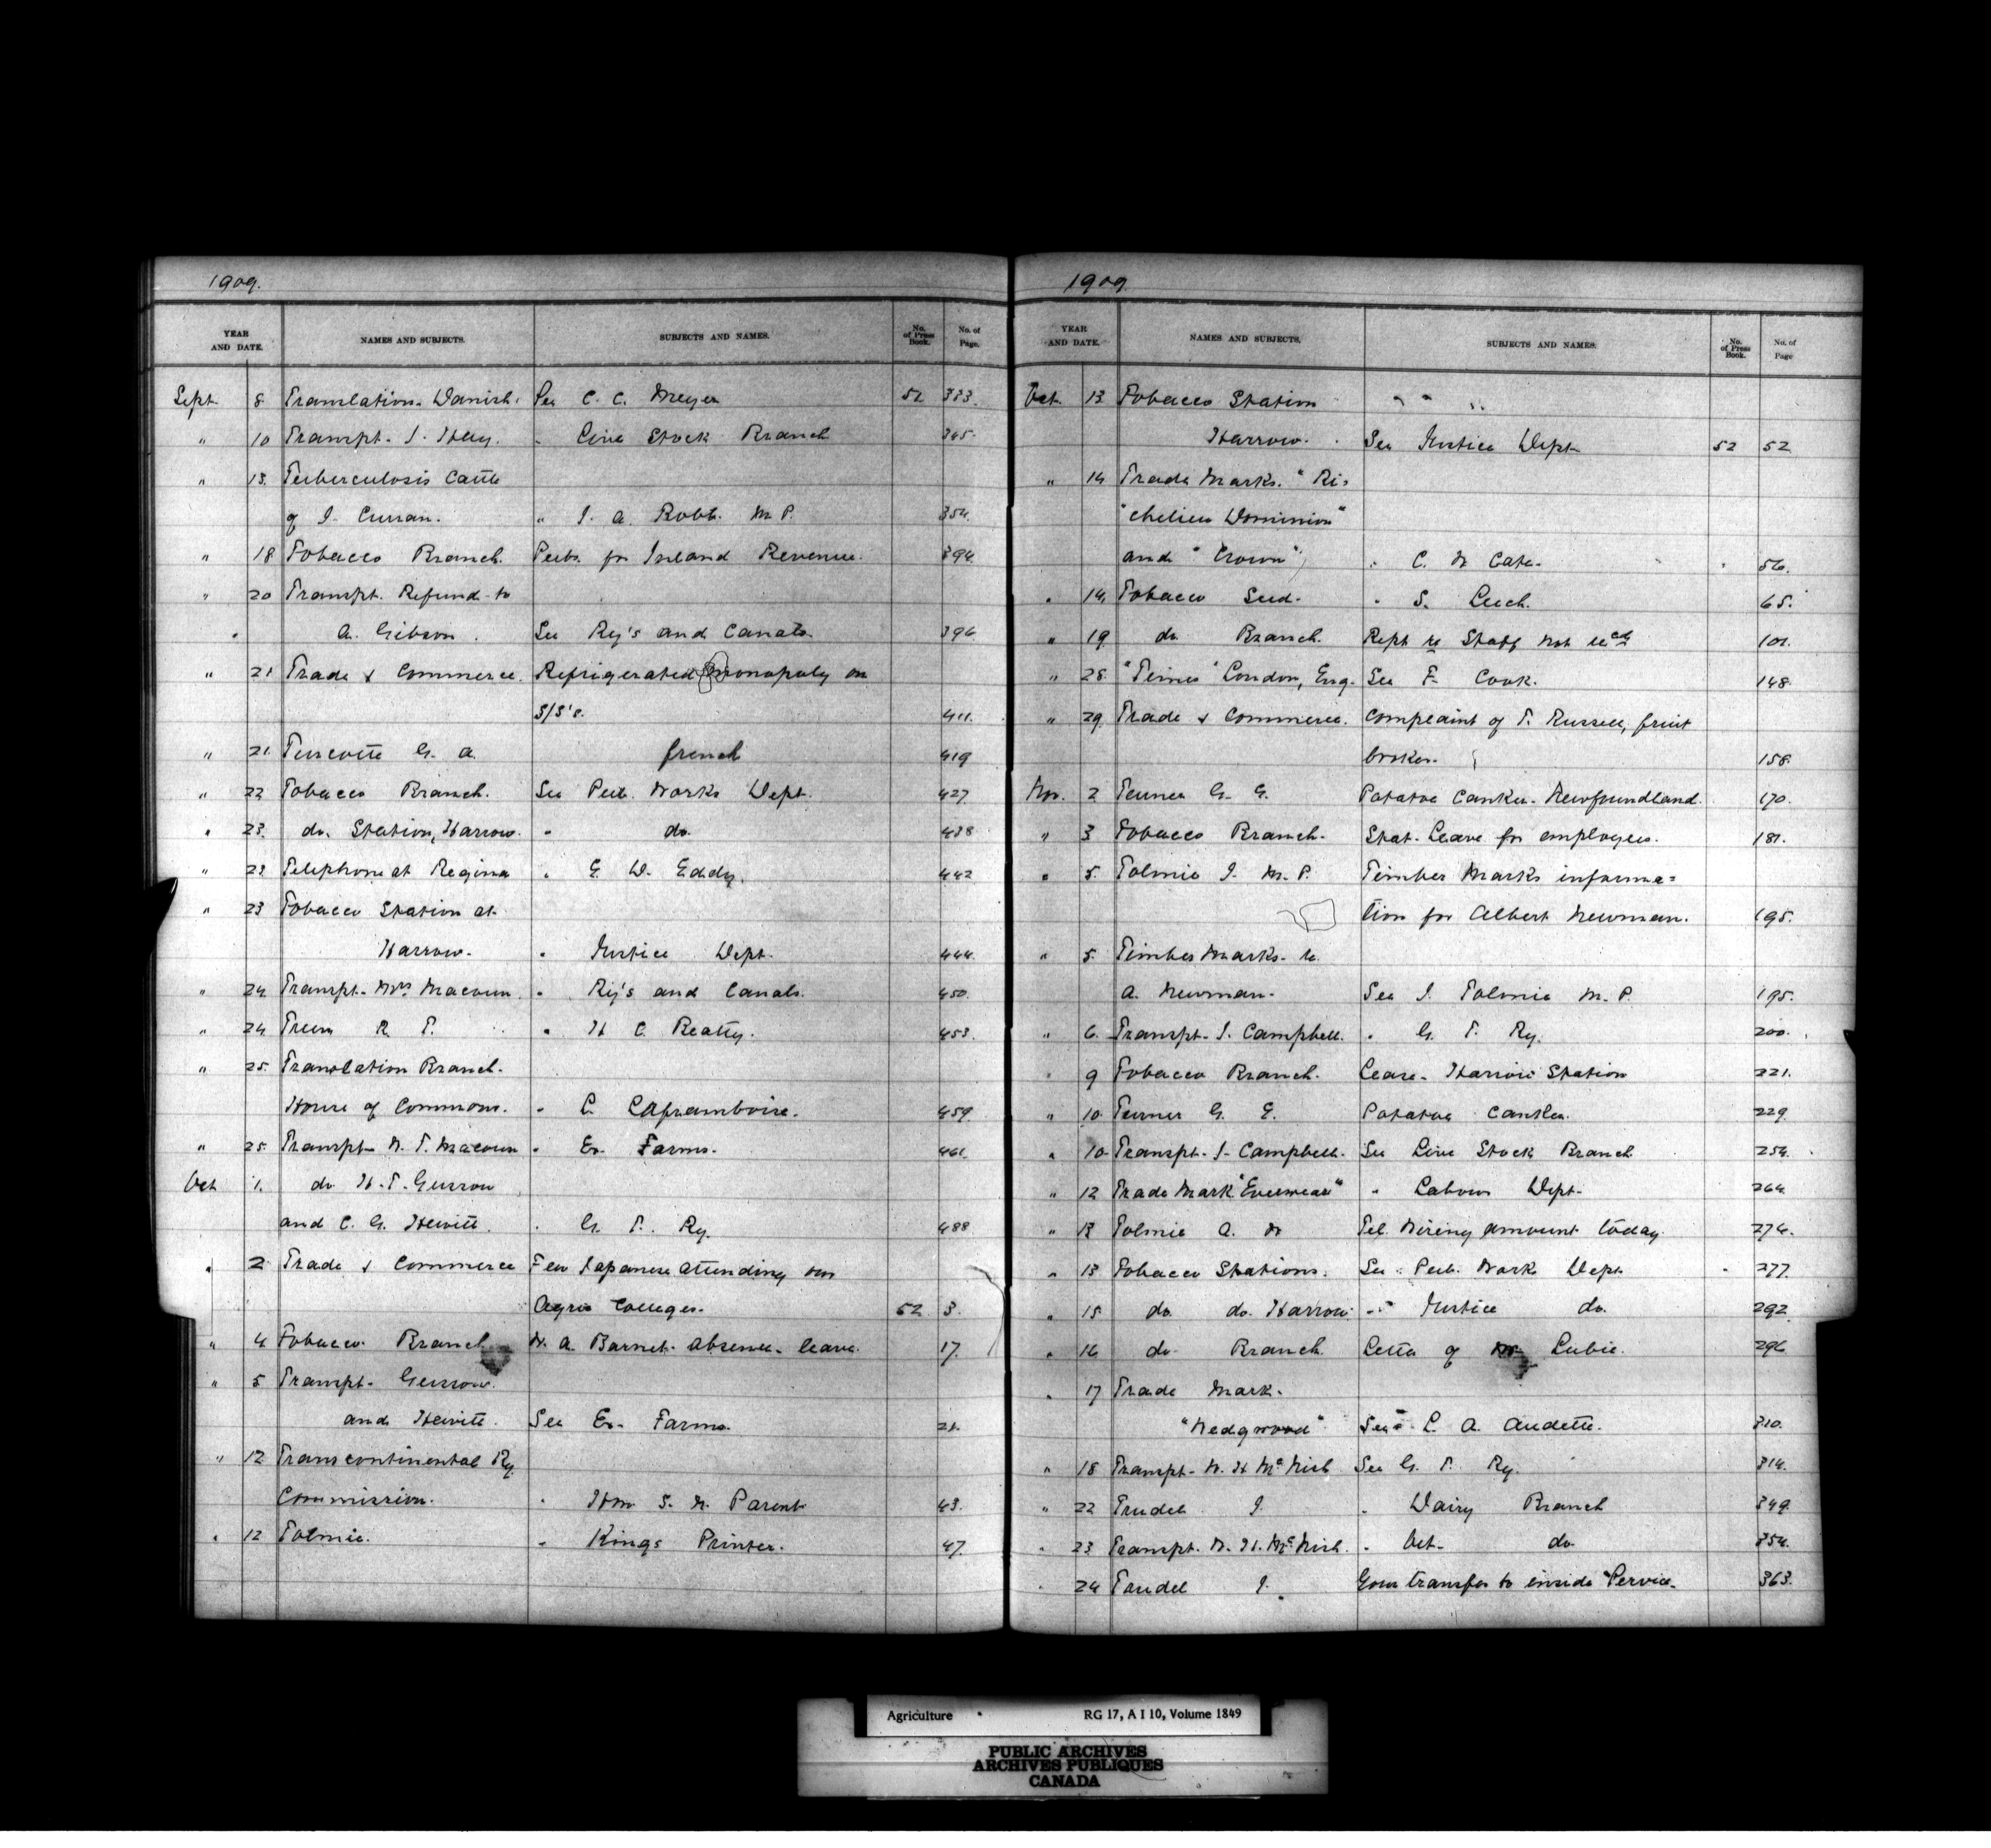 1909.
YEAR AND DATE. NAMES AND SUBJECTS. SUBJECTS AND NAMES. No. of Press Book. No. of Page.
Sept. 8 Translation - Danish. See C. C. Meyer 51 333.
" 10 Transpt. J. Hay. " Live Stock Branch 345.
" 13. Tuberculosis Cattle
of J. Curran. " J. A. Robb. M P. 354.
" 18 Tobacco Branch. Pubs. for Inland Revenue. 394.
" 20 Transpt. Refund to
" A. Gibson. See Ry's and Canals. 396
" 21 Trade & Commerce. Refrigerated Monopoly on
S/S's. 411.
" 21. Turcotte G. A. french 419
" 22 Tobacco Branch. See Pub. Works Dept. 427.
" 23. do. Station, Harrow. " do. 438
" 23 Telephone at Regina " E. W. Eddy. 442
" 23 Tobacco Station at
Harrow. " Justice Dept. 444.
" 24. Transpt. Mrs Macoun. " Ry's and Canals. 450.
" 24 R. T. " H C Beatty. 453.
" 25. Translation Branch.
House of Commons. " L. Laframboise. 459.
" 25. Transpt. W. T. Macoun " Ex. Farms. 461.
Oct 1. do H. T. Gussow
and C. G. Hewitt. " G. T. Ry. 488
" 2 Trade & Commerce Few Japanese attending our
Agric Colleges. 52 3.
" 4 Tobacco Branch W. A. Barnet. Absence - leave. 17.
" 5 Transpt. Gussow
and Hewitt. See Ex. Farms. 21.
" 12 Transcontinental Ry.
Commission. " Hon S. N. Parent 43.
" 12 Tolmie. " Kings Printer. 47.
1909
YEAR AND DATE. NAMES AND SUBJECTS. SUBJECTS AND NAMES. No. of Press Book. No. of Page
Oct. 13 Tobacco Station " " "
Harrow. See Justice Dept 52 52
" 14 Trade Marks. "Ri-
"chelieu Dominion"
and "Crown" " C. W Cate. 56.
" 14. Tobacco Seed. " S. Leech. 65.
" 19 do. Branch. Rept re Staff not recd 101.
" 28. "Times" London, Eng. See F. Cook. 148.
" 29. Trade & Commerce. Complaint of T. Russell, fruit
broker. 158.
Nov. 2 Turner G. E. Potatoe Canker. Newfoundland. 170.
" 3 Tobacco Branch. Stat. Leave for employees. 181.
" 5. Tolmie J. M. P. Timber Marks informa=
tion for Albert Newman. 195.
" 5 Timber Marks. re
A. Newman. See J. Tolmie M. P. 195.
" 6. Transpt. J. Campbell. " G. T. Ry. 200.
" 9 Tobacco Branch. Lease. Harrow Station 221.
" 10. Turner G. E. Potatoe Canker. 229
" 10. Transpt. J. Campbell. See Live Stock Branch 254.
" 12 Trade Mark "Everwear" " Labour Dept. 264
" 13 Tolmie A. W Tel. Wiring amount today. 274.
" 13 Tobacco Stations. See Pub. Work Dept 277.
" 15 do. do. Harrow. " Justice do. 292
" 16 do. Branch. Letter of Mr. Lubie. 296
" 17 Trade Mark.
"Wedgwood" See L. A. Audette. 310.
" 18 Transpt. W. H McNish See G. T. Ry. 314.
" 22 Trudel J. " Dairy Branch 349.
" 23 Transpt. W. H. McNish. " Vet. do. 354.
" 24 Trudel J. Your transfer to inside Service. 363.
Agriculture RG 17, A I 10, Volume 1849
PUBLIC ARCHIVES
ARCHIVES PUBLIQUES
CANADA